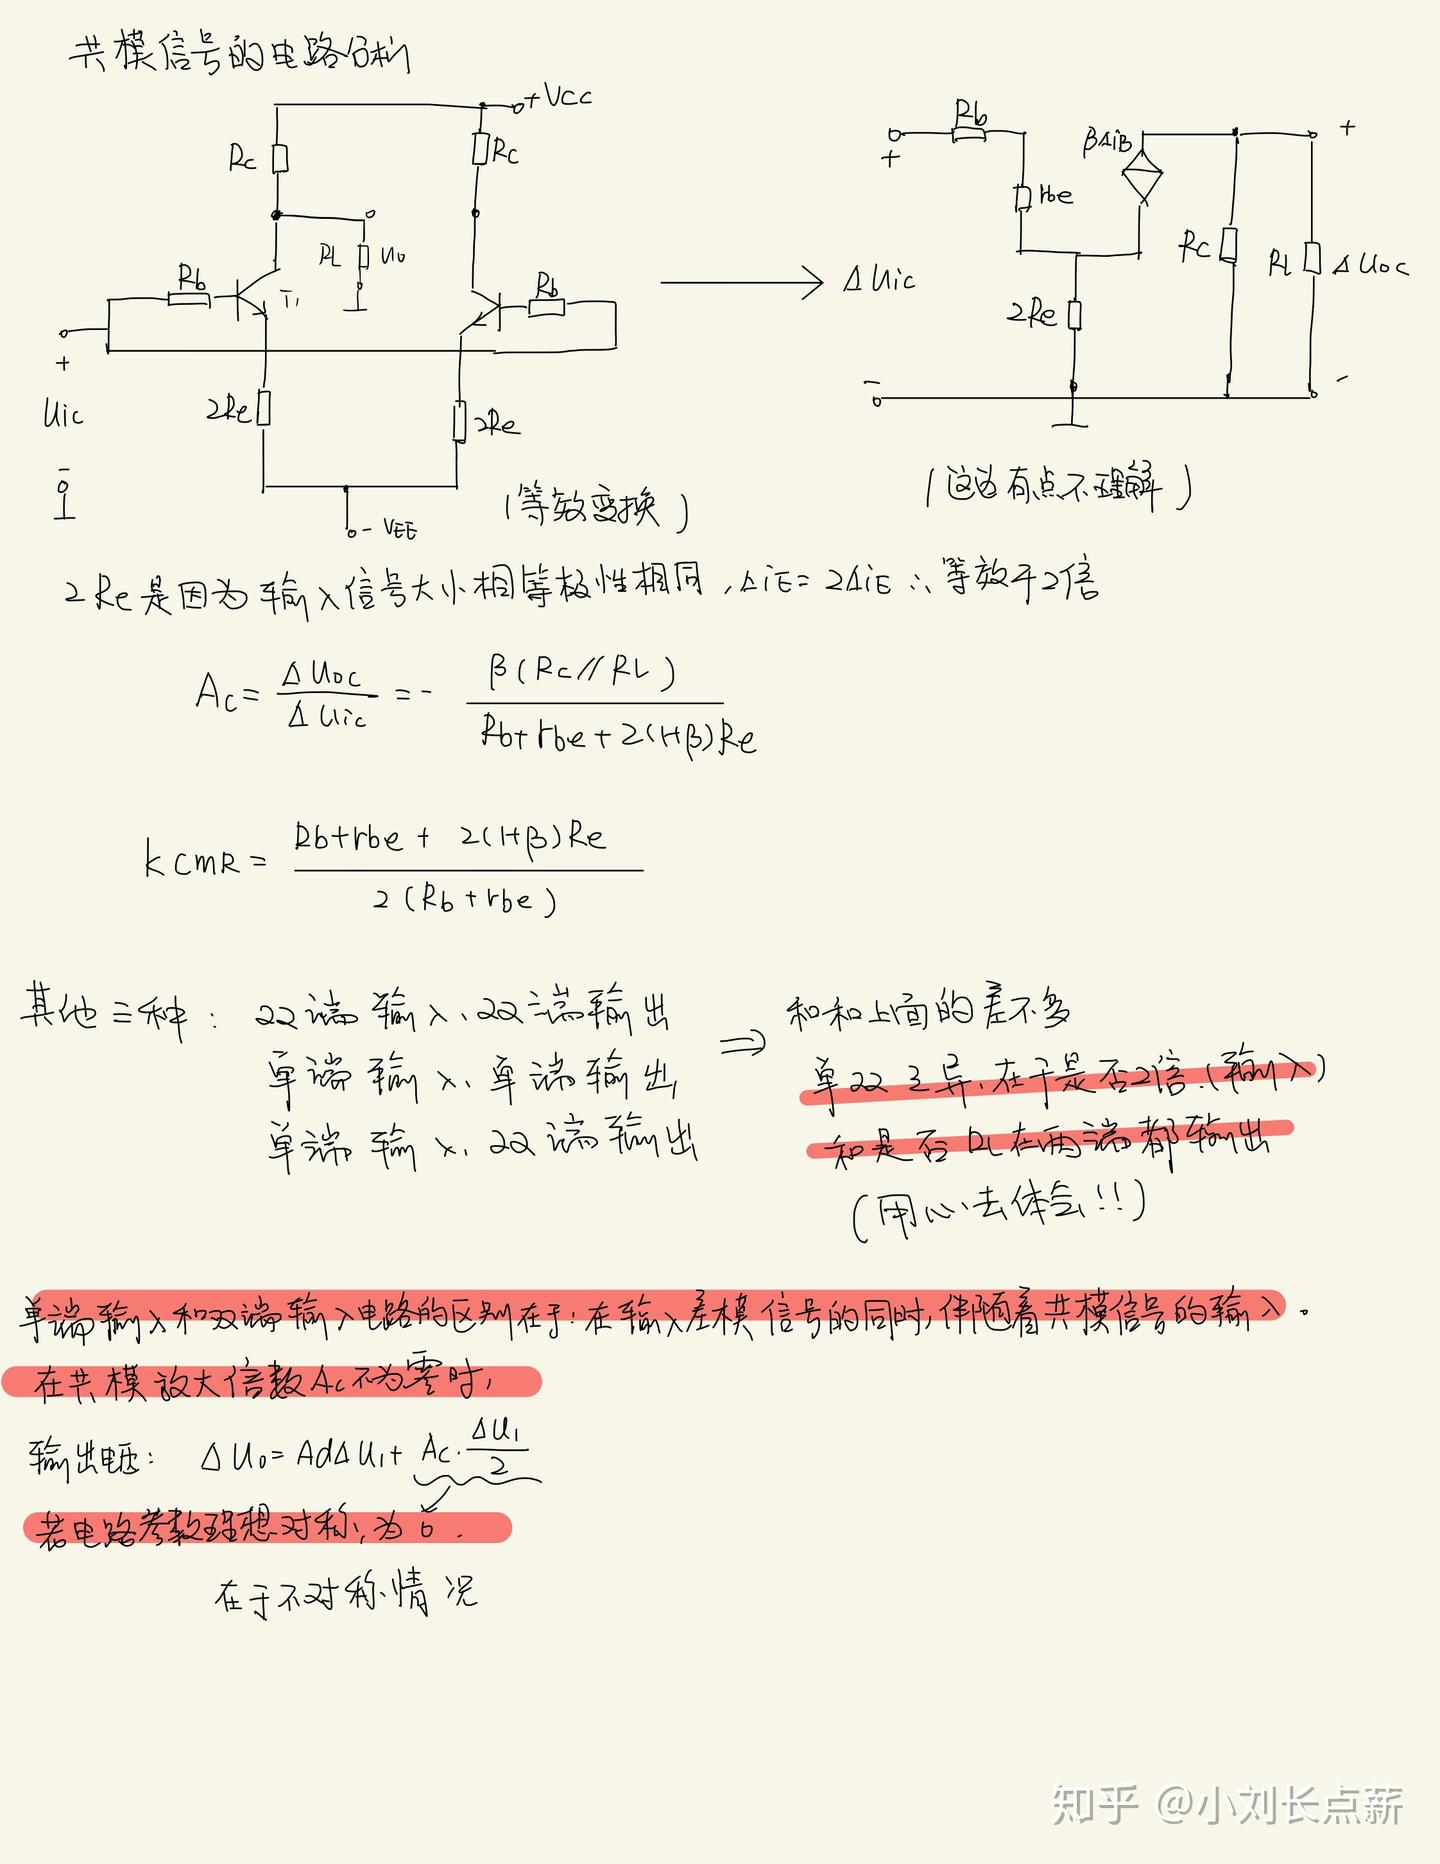 共模信号的电路分析
+Vcc
Rc
Rc
RL
Uo
Rb
T1
Rb
+
Uic
-
2Re
2Re
-VEE
(等效变换)
Rb
+
rbe
βΔiB
+
ΔUic
2Re
Rc
RL
ΔUoc
-
-
(这边有点不理解)
2Re是因为输入信号大小相等极性相同,ΔiE=2ΔiE∴等效于2倍
Ac=ΔUoc/ΔUic=-β(Rc//RL)/Rb+rbe+2(1+β)Re
kCMR=Rb+rbe+2(1+β)Re/2(Rb+rbe)
其他三种:双端输入、双端输出
单端输入、单端输出
单端输入、双端输出
⇒
和和上面的差不多
单双之异、在于是否2倍.(输入)
和是否RL在两端都输出
(用心去体会!!)
单端输入和双端输入电路的区别在于:在输入差模信号的同时,伴随着共模信号的输入。
在共模放大倍数Ac不为零时,
输出电压: ΔUo=AdΔU1+Ac·ΔU1/2
若电路参数理想对称,为0.
在于不对称情况
知乎 @小刘长点薪